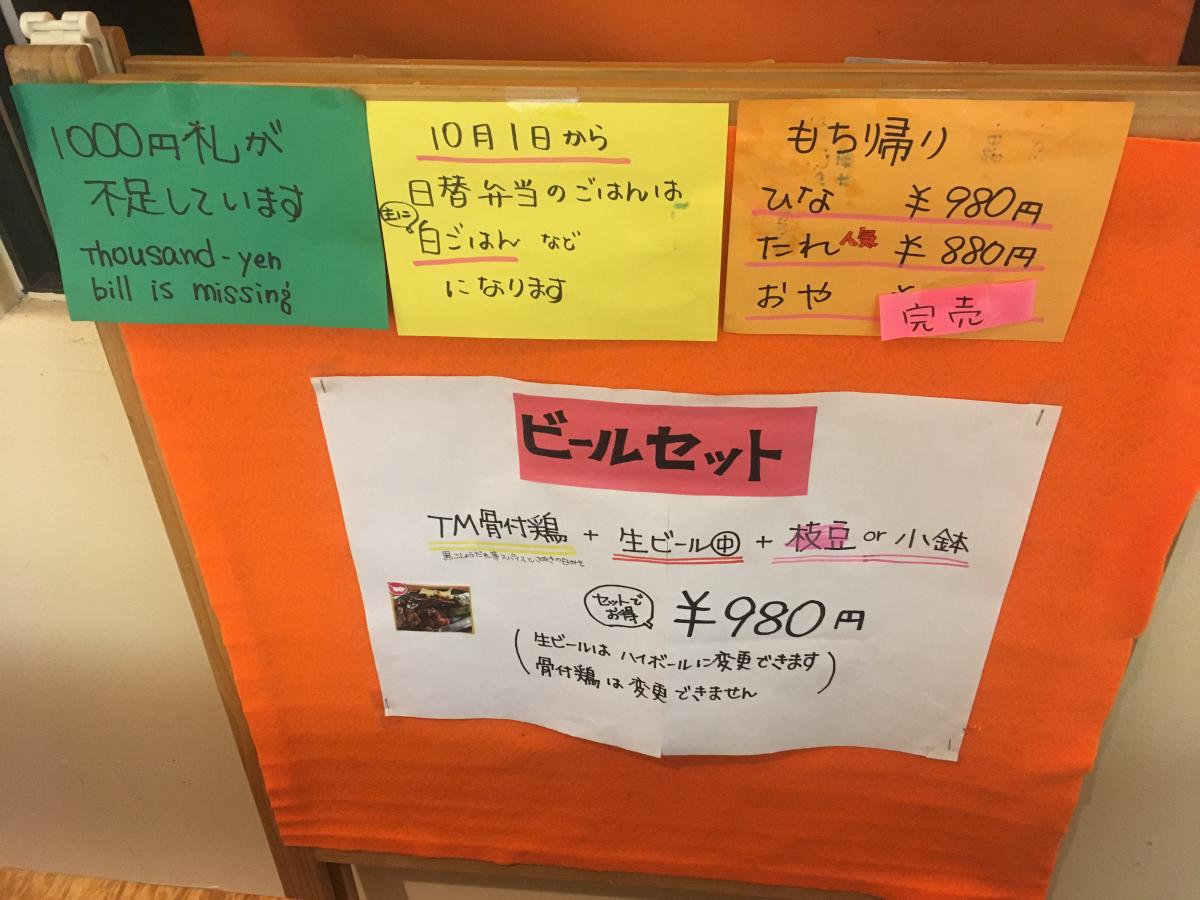 1000円札が
不足しています
Thousand-yen
bill is missing
10月1日から
日替弁当のごはんは
主に
白ごはん など
になります
もち帰り
ひな ¥980円
たれ 人気 ¥880円
おや ¥
完売
ビールセット
TM骨付鶏 + 生ビール中 + 枝豆 or 小鉢
黒こしょうだれ等スパイスとさぬきの白みそ
セットで
お得
¥980円
(生ビールは ハイボールに変更できます
骨付鶏は変更できません)